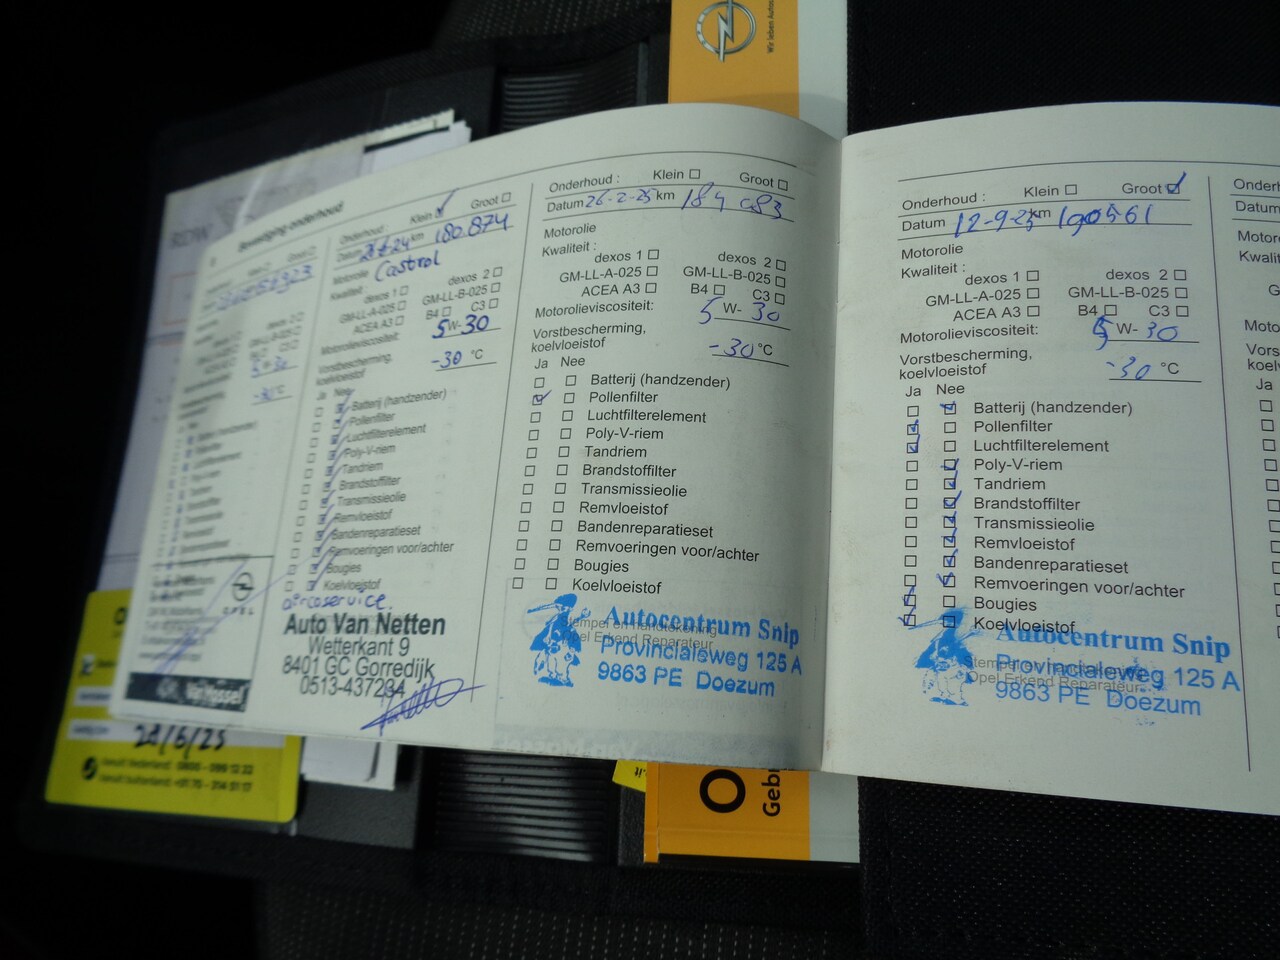 Wir leben Autos
Bevestiging onderhoud
Klein Groot
5 W- 30
-30 °C
OPEL
Onderhoud :
Klein Groot
Datum km 180.874
Motorolie Castrol
Kwaliteit :
dexos 1 dexos 2
GM-LL-A-025 GM-LL-B-025
ACEA A3 B4 C3
Motorolieviscositeit: 5 W- 30
Vorstbescherming,
koelvloeistof -30 °C
Ja Nee
Batterij (handzender)
Pollenfilter
Luchtfilterelement
Poly-V-riem
Tandriem
Brandstoffilter
Transmissieolie
Remvloeistof
Bandenreparatieset
Remvoeringen voor/achter
Bougies
Koelvloeistof
aircoservice.
Auto Van Netten
Wetterkant 9
8401 GC Gorredijk
0513-437234
Onderhoud : Klein Groot
Datum 26-2-25 km 184 083
Motorolie
Kwaliteit :
dexos 1 dexos 2
GM-LL-A-025 GM-LL-B-025
ACEA A3 B4 C3
Motorolieviscositeit: 5 W- 30
Vorstbescherming,
koelvloeistof -30 °C
Ja Nee
Batterij (handzender)
Pollenfilter
Luchtfilterelement
Poly-V-riem
Tandriem
Brandstoffilter
Transmissieolie
Remvloeistof
Bandenreparatieset
Remvoeringen voor/achter
Bougies
Koelvloeistof
Stempel en handtekening
Opel Erkend Reparateur
Autocentrum Snip
Provincialeweg 125 A
9863 PE Doezum
Onderhoud : Klein Groot
Datum 12-9-25 km 190561
Motorolie
Kwaliteit :
dexos 1 dexos 2
GM-LL-A-025 GM-LL-B-025
ACEA A3 B4 C3
Motorolieviscositeit: 5 W- 30
Vorstbescherming,
koelvloeistof -30 °C
Ja Nee
Batterij (handzender)
Pollenfilter
Luchtfilterelement
Poly-V-riem
Tandriem
Brandstoffilter
Transmissieolie
Remvloeistof
Bandenreparatieset
Remvoeringen voor/achter
Bougies
Koelvloeistof
Stempel en handtekening
Opel Erkend Reparateur
Autocentrum Snip
Provincialeweg 125 A
9863 PE Doezum
Datum
Ja
21/6/25
O
Gebr